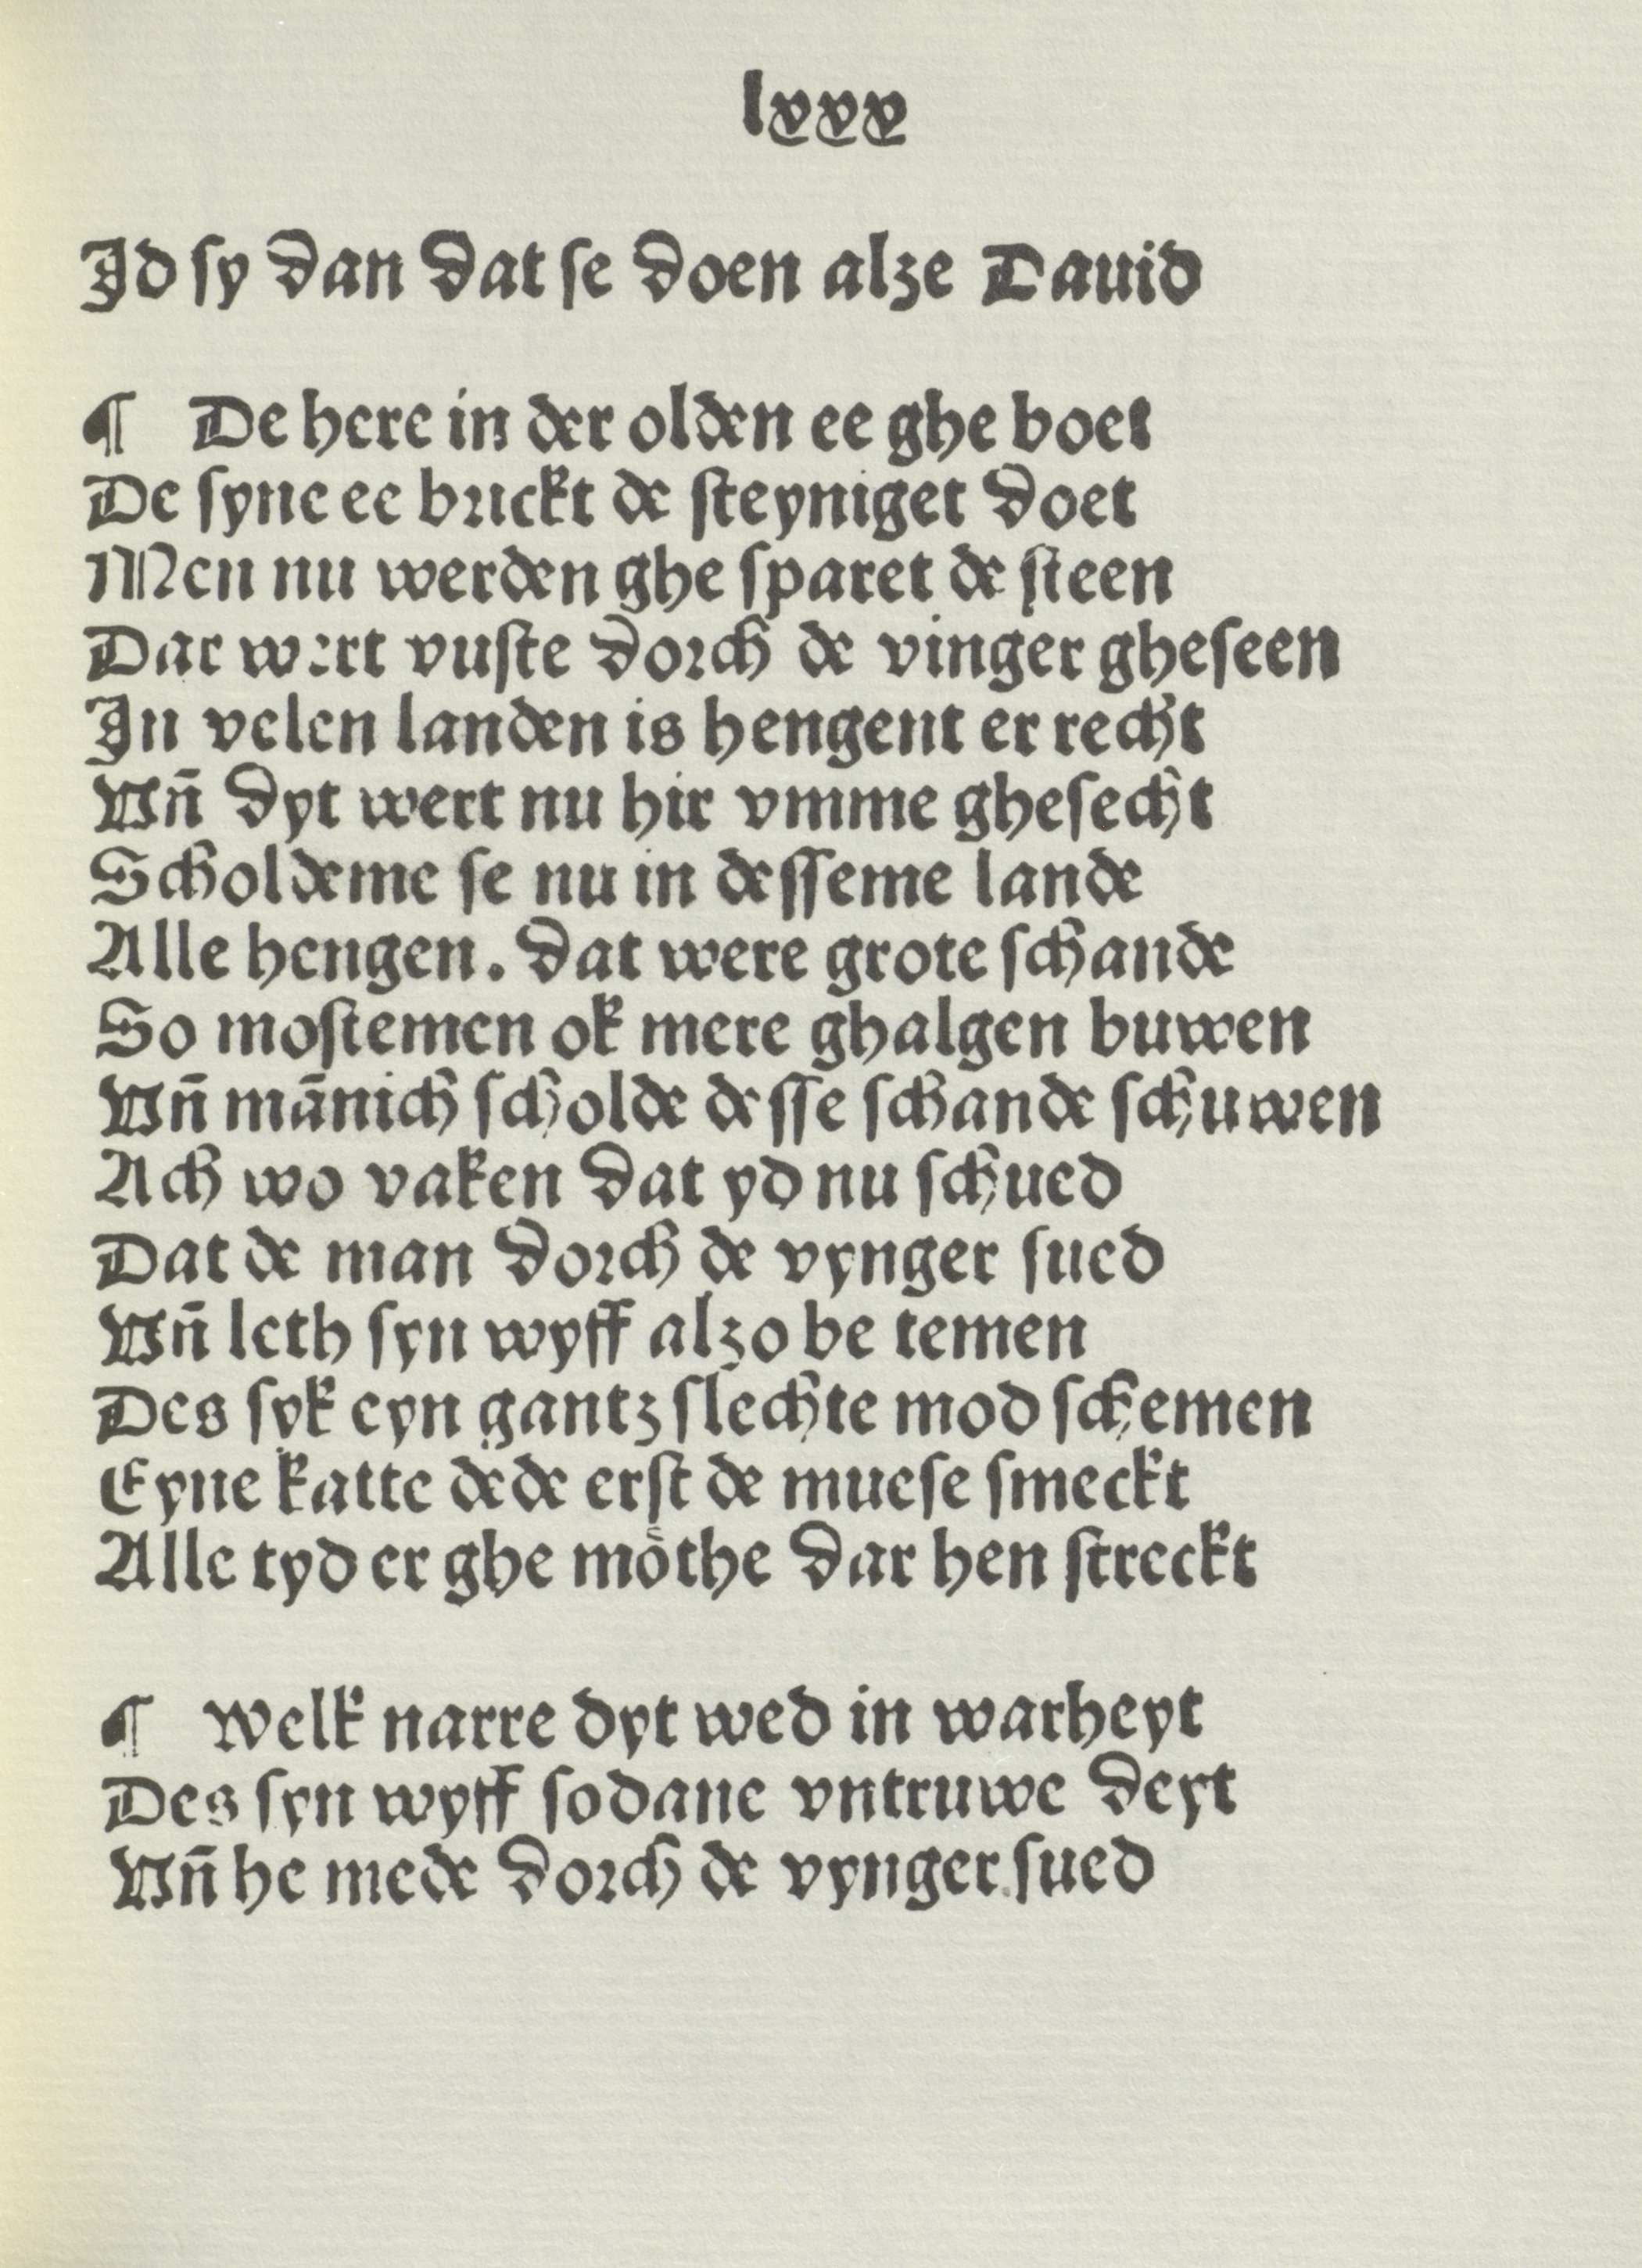 lxxx
Jd sy dan dat se doen alze Dauid
¶ De here in der olden ee ghe boet
De syne ee brickt de steyniget doet
Men nu werden ghe sparet de steen
Dar wert vuste dorch de vinger gheseen
Jn velen landen is hengent er recht
Vñ dyt wert nu hir vmme ghesecht
Scholdeme se nu in desseme lande
Alle hengen. dat were grote schande
So mostemen ok mere ghalgen buwen
Vñ mānich scholde desse schande schuwen
Ach wo vaken dat yd nu schued
Dat de man dorch de vynger sued
Vñ leth syn wyff alzo be temen
Des syk eyn gantz slechte mod schemen
Eyne katte dede erst de muese smeckt
Alle tyd er ghe moͤthe dar hen streckt
¶ Welk narre dyt wed in warheyt
Des syn wyff sodane vntruwe deyt
Vñ he mede dorch de vynger sued